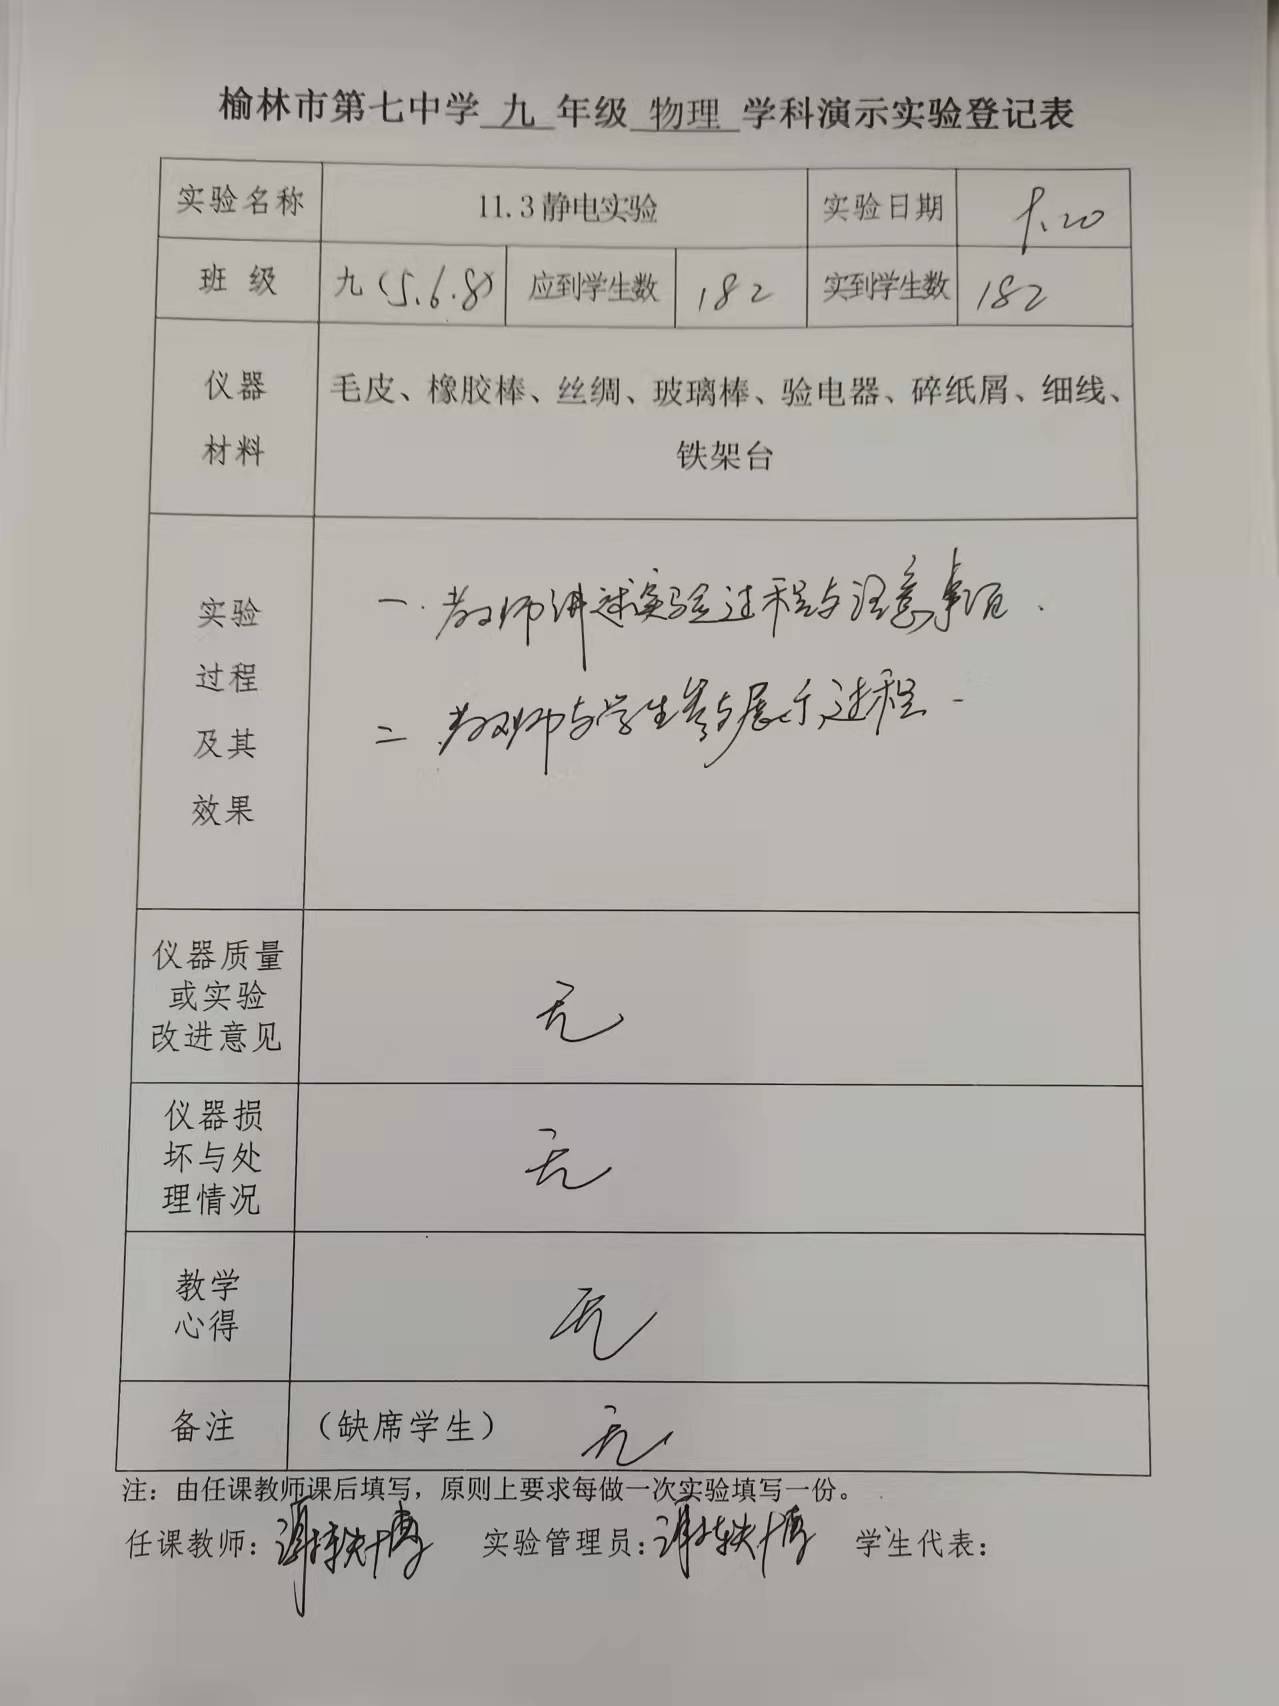 榆林市第七中学 九 年级 物理 学科演示实验登记表
实验名称 11.3静电实验 实验日期 9.20
班 级 九（5.6.8） 应到学生数 182 实到学生数 182
仪器
材料
毛皮、橡胶棒、丝绸、玻璃棒、验电器、碎纸屑、细线、
铁架台
实验
过程
及其
效果
一.教师讲述实验过程与注意事项.
二 教师与学生参与展示过程.
仪器质量
或实验
改进意见
无
仪器损
坏与处
理情况
无
教学
心得
无
备注 （缺席学生） 无
注：由任课教师课后填写，原则上要求每做一次实验填写一份。
任课教师： 实验管理员： 学生代表：